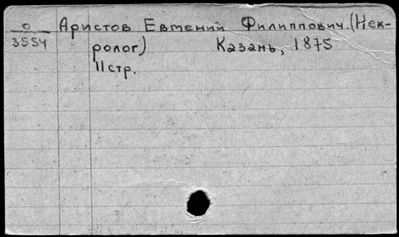 0 Аристов Евгений Филиппович. (Нек-
3554 ролог) Казань, 1875
11 стр.